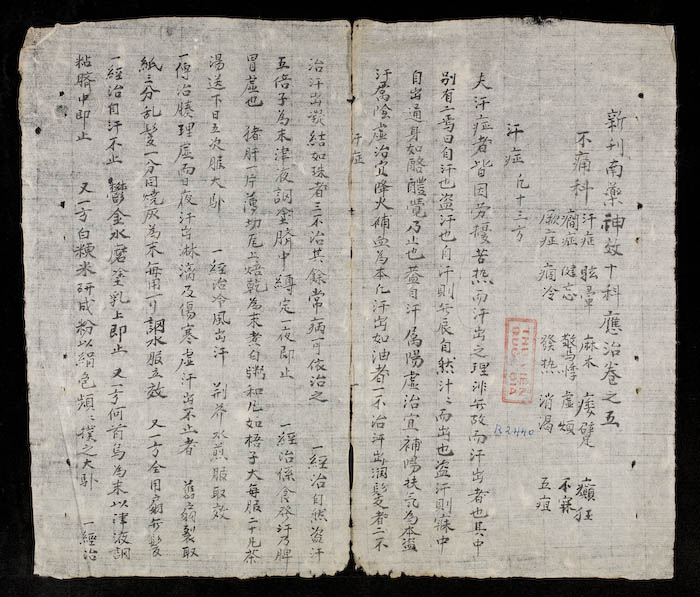 新刊南藥神效十科應治卷之五
不痛科 汗症 眩暈 麻木 痿躄 癲狂
癎症 健忘 驚悸 虛煩 不寐
厥症 痼冷 發热 消渴 五疸
汗症 凡十三方
夫汗症者皆因劳擾苦热而汗出之理非無故而汗出者也其中
別有二焉曰自汗也盗汗也自汗則無辰自然汁〻而出也盗汗則寐中
自出通身如醅醴覺乃止也蓋自汗属陽虛治宜補陽扶氣為本盗
汗属陰虛治宜降火補血為本凡汗出如油者一不治汗出潤髮者二不
汗症
治汗出凝結如珠者三不治其餘常病可依治之 一經治自然盗汗
五倍子為末津液調塗臍中縛定一夜即止 一經治係食發汗乃脾
胃虛也 猪肝一斤薄切瓦上焙乾為末煮白粥和凡如梧子大每服二凡茶
湯送下日五次服大卧 一經治冷風出汗 荆芥水煎服取效
一傳治腠理虛而日夜汗出淋漓及傷寒虛汗出不止者 舊扇裂取
紙三分乱髪一分同烧灰為末每用一寸調水服立效 又一方全用扇無髪
一經治自汗不止 鬱金水磨塗乳上即止 又一方何首烏為末以津液調
粘臍中即止 又一方白粳米研成粉以絹包頻〻撲之大卧 一經治
THU VIEN
QUOC GIA
B2440